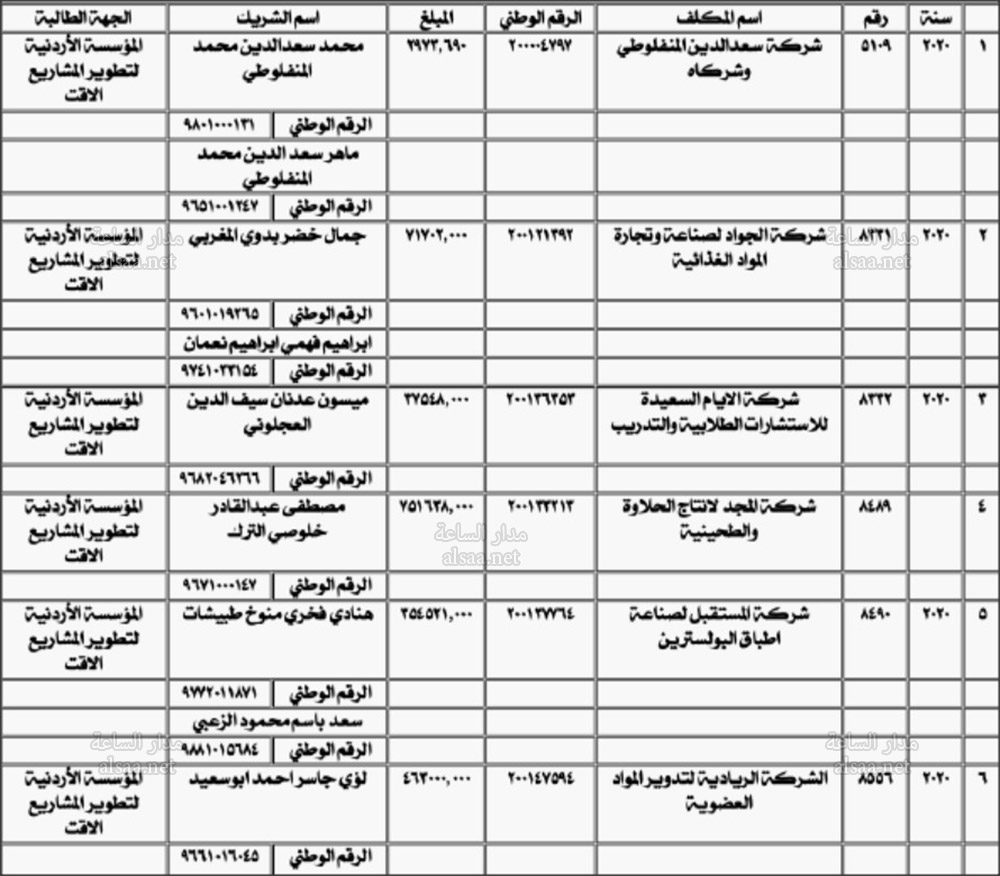 سنة رقم اسم المكلف الرقم الوطني المبلغ اسم الشريك الجهة الطالبة
١ ٢٠٢٠ ٥١٠٩ شركة سعدالدين المنفلوطي ٢٠٠٠٠٤٧٩٧ ٢٩٧٣,٦٩٠ محمد سعدالدين محمد المؤسسة الأردنية
وشركاه المنفلوطي لتطوير المشاريع
الاقت
الرقم الوطني ٩٨٠١٠٠٠١٣١
ماهر سعد الدين محمد
المنفلوطي
الرقم الوطني ٩٦٥١٠٠١٢٤٧
٢ ٢٠٢٠ ٨٣٣١ شركة الجواد لصناعة وتجارة ٢٠٠١٢١٣٩٢ ٧١٧٠٢,٠٠٠ جمال خضر بدوي المغربي المؤسسة الأردنية
المواد الغذائية لتطوير المشاريع
الاقت
الرقم الوطني ٩٦٠١٠١٩٢٦٥
ابراهيم فهمي ابراهيم نعمان
الرقم الوطني ٩٧٤١٠٣٣١٥٤
٣ ٢٠٢٠ ٨٣٣٢ شركة الايام السعيدة ٢٠٠١٣٦٣٥٣ ٣٧٥٤٨,٠٠٠ ميسون عدنان سيف الدين المؤسسة الأردنية
للاستشارات الطلابية والتدريب العجلوني لتطوير المشاريع
الاقت
الرقم الوطني ٩٦٨٢٠٤٦٢٦٦
٤ ٢٠٢٠ ٨٤٨٩ شركة المجد لانتاج الحلاوة ٢٠٠١٣٣٢١٣ ٧٥١٦٣٨,٠٠٠ مصطفى عبدالقادر المؤسسة الأردنية
والطحينية خلوصي الترك لتطوير المشاريع
الاقت
الرقم الوطني ٩٦٧١٠٠٠١٤٧
٥ ٢٠٢٠ ٨٤٩٠ شركة المستقبل لصناعة ٢٠٠١٣٧٧٦٤ ٣٥٤٥٢١,٠٠٠ هنادي فخري منوخ طبيشات المؤسسة الأردنية
اطباق البولسترين لتطوير المشاريع
الاقت
الرقم الوطني ٩٧٧٢٠١١٨٧١
سعد باسم محمود الزعبي
الرقم الوطني ٩٨٨١٠١٥٦٨٤
٦ ٢٠٢٠ ٨٥٥٦ الشركة الريادية لتدوير المواد ٢٠٠١٤٧٥٩٤ ٤٦٣٠٠٠,٠٠٠ لؤي جاسر احمد ابوسعيد المؤسسة الأردنية
العضوية لتطوير المشاريع
الاقت
الرقم الوطني ٩٦٦١٠١٦٠٤٥
مدار الساعة
alsaa.net
مدار الساعة
alsaa.net
مدار الساعة
alsaa.net
مدار الساعة
alsaa.net
مدار الساعة
alsaa.net